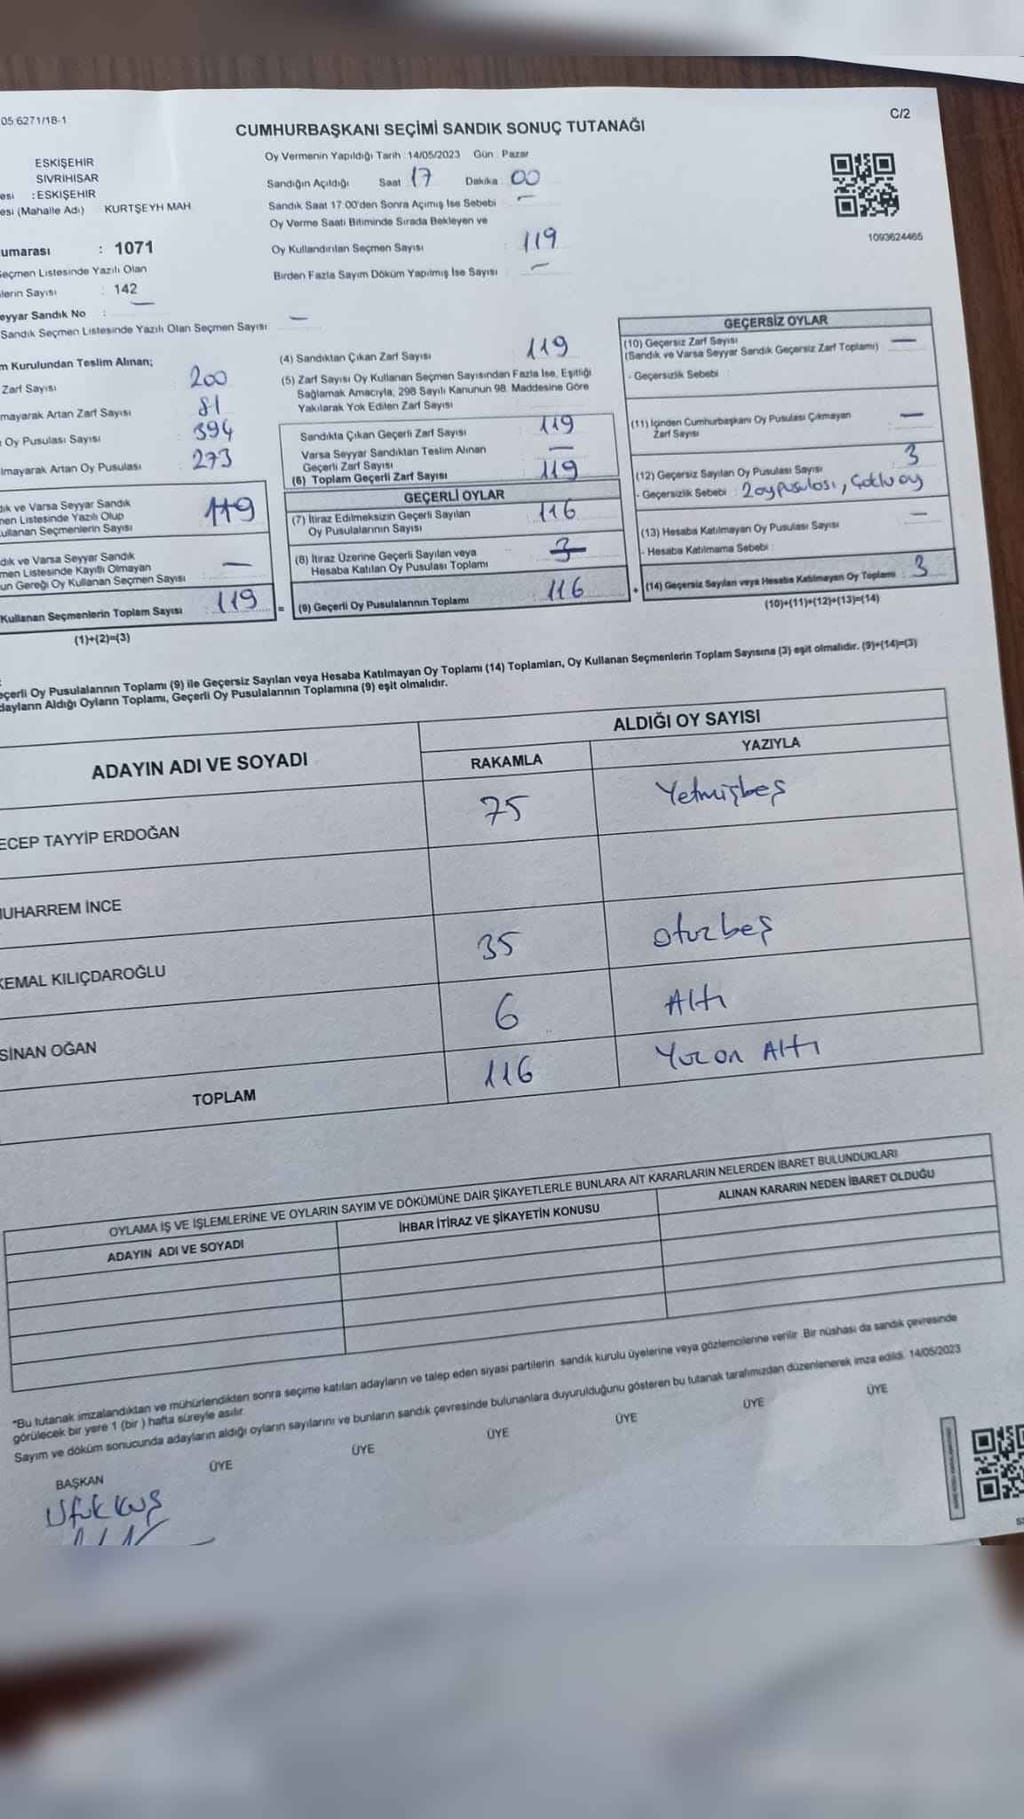 05 6271/1B-1
C/2
CUMHURBAŞKANI SEÇİMİ SANDIK SONUÇ TUTANAĞI
Oy Vermenin Yapıldığı Tarih :14/05/2023 Gün : Pazar
ESKİŞEHİR
SİVRİHİSAR
esi : ESKİŞEHİR
esi (Mahalle Adı) KURTŞEYH MAH.
Sandığın Açıldığı Saat 17 Dakika 00
Sandık Saat 17:00'den Sonra Açımış İse Sebebi —
Oy Verme Saati Bitiminde Sırada Bekleyen ve
Oy Kullandırılan Seçmen Sayısı : 119
Birden Fazla Sayım Döküm Yapılmış İse Sayısı —
1093624465
umarası : 1071
Seçmen Listesinde Yazılı Olan
lerin Sayısı : 142
eyyar Sandık No : —
Sandık Seçmen Listesinde Yazılı Olan Seçmen Sayısı —
m Kurulundan Teslim Alınan;
Zarf Sayısı 200
mayarak Artan Zarf Sayısı 81
Oy Pusulası Sayısı 394
lmayarak Artan Oy Pusulası 273
dık ve Varsa Seyyar Sandık
men Listesinde Yazılı Olup
ullanan Seçmenlerin Sayısı 119
dık ve Varsa Seyyar Sandık
men Listesinde Kayıtlı Olmayan
un Gereği Oy Kullanan Seçmen Sayısı —
Kullanan Seçmenlerin Toplam Sayısı 119
(1)+(2)=(3)
(4) Sandıktan Çıkan Zarf Sayısı 119
(5) Zarf Sayısı Oy Kullanan Seçmen Sayısından Fazla İse, Eşitliği
Sağlamak Amacıyla, 298 Sayılı Kanunun 98. Maddesine Göre
Yakılarak Yok Edilen Zarf Sayısı
Sandıkta Çıkan Geçerli Zarf Sayısı 119
Varsa Seyyar Sandıktan Teslim Alınan
Geçerli Zarf Sayısı —
(6) Toplam Geçerli Zarf Sayısı 119
GEÇERLİ OYLAR
(7) İtiraz Edilmeksizin Geçerli Sayılan
Oy Pusulalarının Sayısı 116
(8) İtiraz Üzerine Geçerli Sayılan veya
Hesaba Katılan Oy Pusulası Toplamı 3
= (9) Geçerli Oy Pusulalarının Toplamı 116
GEÇERSİZ OYLAR
(10) Geçersiz Zarf Sayısı
(Sandık ve Varsa Seyyar Sandık Geçersiz Zarf Toplamı) —
- Geçersizlik Sebebi :
(11) İçinden Cumhurbaşkanı Oy Pusulası Çıkmayan
Zarf Sayısı —
(12) Geçersiz Sayılan Oy Pusulası Sayısı 3
- Geçersizlik Sebebi : 2 oy pusulası, çoklu oy
(13) Hesaba Katılmayan Oy Pusulası Sayısı —
- Hesaba Katılmama Sebebi :
+ (14) Geçersiz Sayılan veya Hesaba Katılmayan Oy Toplamı 3
(10)+(11)+(12)+(13)=(14)
:
eçerli Oy Pusulalarının Toplamı (9) ile Geçersiz Sayılan veya Hesaba Katılmayan Oy Toplamı (14) Toplamları, Oy Kullanan Seçmenlerin Toplam Sayısına (3) eşit olmalıdır. (9)+(14)=(3)
dayların Aldığı Oyların Toplamı, Geçerli Oy Pusulalarının Toplamına (9) eşit olmalıdır.
ADAYIN ADI VE SOYADI
ALDIĞI OY SAYISI
RAKAMLA YAZIYLA
ECEP TAYYİP ERDOĞAN 75 Yetmişbeş
MUHARREM İNCE
KEMAL KILIÇDAROĞLU 35 otuzbeş
SİNAN OĞAN 6 Altı
TOPLAM 116 Yüz on Altı
OYLAMA İŞ VE İŞLEMLERİNE VE OYLARIN SAYIM VE DÖKÜMÜNE DAİR ŞİKAYETLERLE BUNLARA AİT KARARLARIN NELERDEN İBARET BULUNDUKLARI
ADAYIN ADI VE SOYADI İHBAR İTİRAZ VE ŞİKAYETİN KONUSU ALINAN KARARIN NEDEN İBARET OLDUĞU
*Bu tutanak imzalandıktan ve mühürlendikten sonra seçime katılan adayların ve talep eden siyasi partilerin sandık kurulu üyelerine veya gözlemcilerine verilir. Bir nüshası da sandık çevresinde
görülecek bir yere 1 (bir ) hafta süreyle asılır.
Sayım ve döküm sonucunda adayların aldığı oyların sayılarını ve bunların sandık çevresinde bulunanlara duyurulduğunu gösteren bu tutanak tarafımızdan düzenlenerek imza edildi. 14/05/2023
BAŞKAN ÜYE ÜYE ÜYE ÜYE ÜYE ÜYE
Ufuk kuş